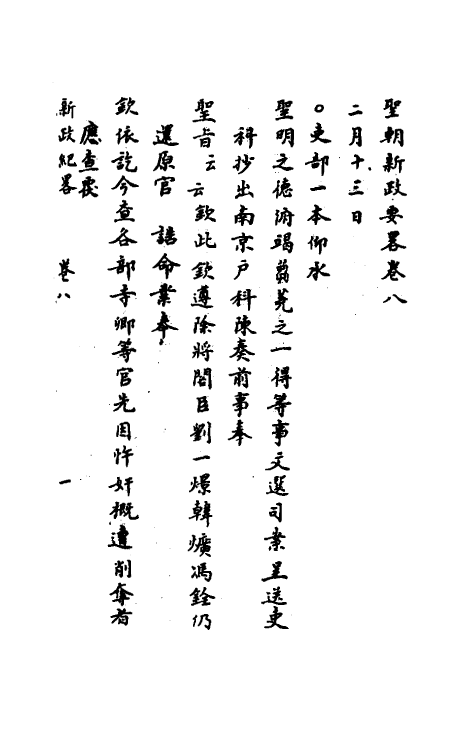 聖朝新政要畧卷八
二月十三日
○吏部一本仰承
聖明之德俯竭芻蕘之一得等事文選司案呈送吏
科抄出南京戶科陳奏前事奉
聖旨云云欽此欽遵除將閣臣劉一燝韓爌馮銓仍
還原官誥命業奉
欽依訖今查各部寺卿等官先因忤奸概遭削奪者
應查覆
新政紀畧 卷八 一